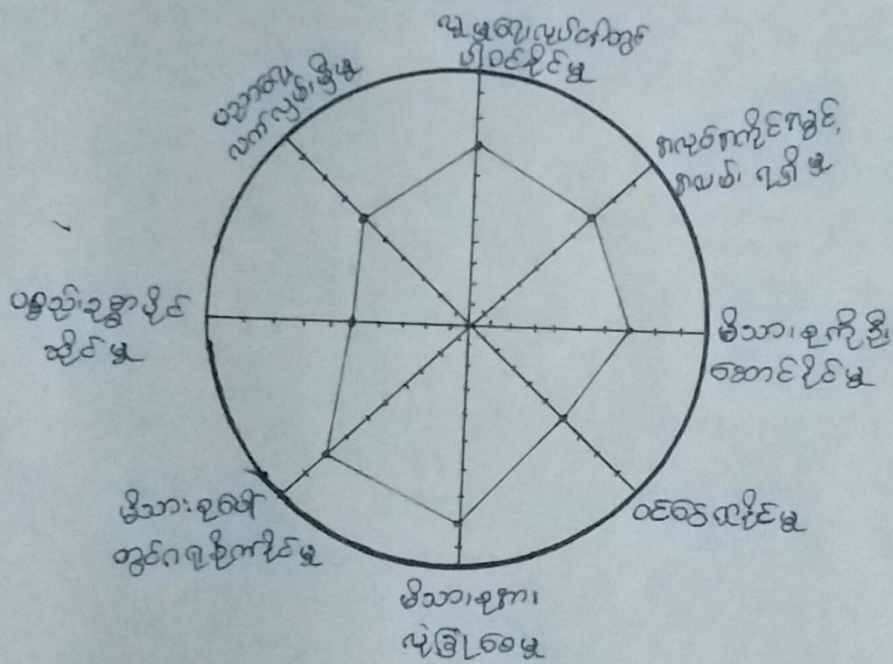 လူမှုရေးလုပ်ငန်းတွင်
ပါဝင်နိုင်မှု
အလုပ်အကိုင်အခွင့်
အလမ်းရရှိမှု
မိသားစုကိုဦး
ဆောင်နိုင်မှု
ဝင်ငွေရနိုင်မှု
မိသားစုအား
လုံခြုံစေမှု
မိသားစုပေါ်
တွင်ဂရုစိုက်နိုင်မှု
ပစ္စည်းဥစ္စာပိုင်
ဆိုင်မှု
ပညာရေး
လက်လှမ်းမှီမှု